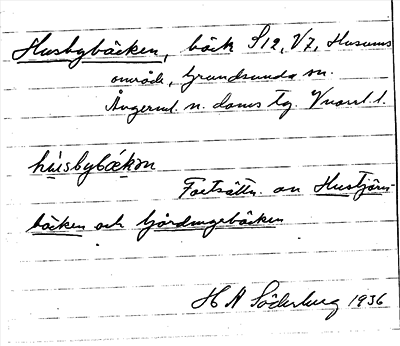 Husbybäcken, bäck S12, V7, Husums
område, Grundsunda sn.
Ångerml. n. doms tg. Vnorrl. l.
húsbybǽkən
Fortsättn. av Hustjärn-
bäcken och fjärdingebäcken
H A Söderberg 1936